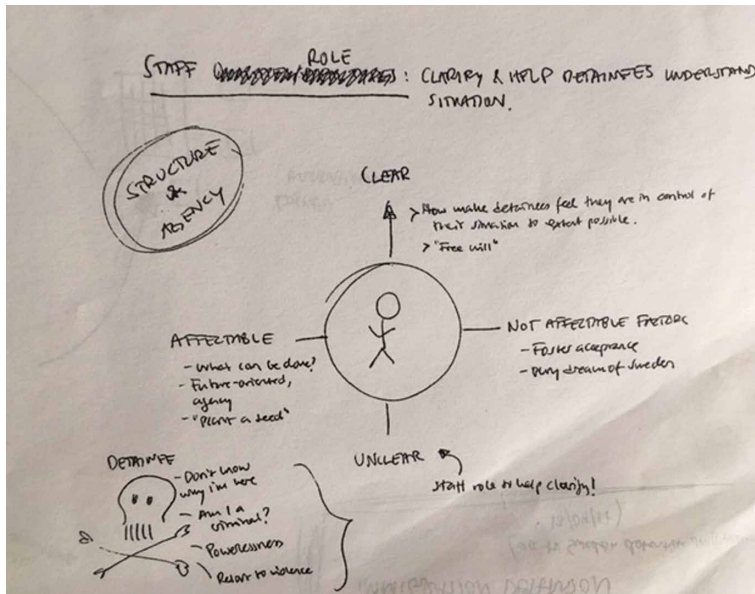 STAFF ROLE: CLARIFY & HELP DETAINEES UNDERSTAND
SITUATION.
STRUCTURE
&
AGENCY
CLEAR
> How make detainees feel they are in control of
their situation to extent possible.
> "Free will"
AFFECTABLE
- What can be done?
- Future-oriented,
agency
- "Plant a seed"
NOT AFFECTABLE FACTORS
- Foster acceptance
- Bury dream of Sweden
UNCLEAR
Staff role to help clarify!
DETAINEE
- Don't know
why I'm here
- Am I a
criminal?
- Powerlessness
- Resort to violence